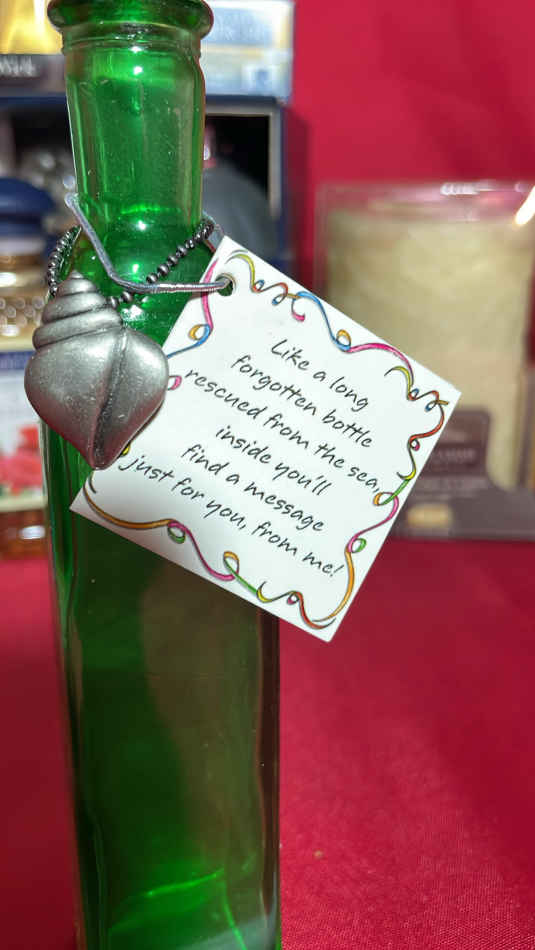 Like a long
forgotten bottle
rescued from the sea,
inside you'll
find a message
just for you, from me!